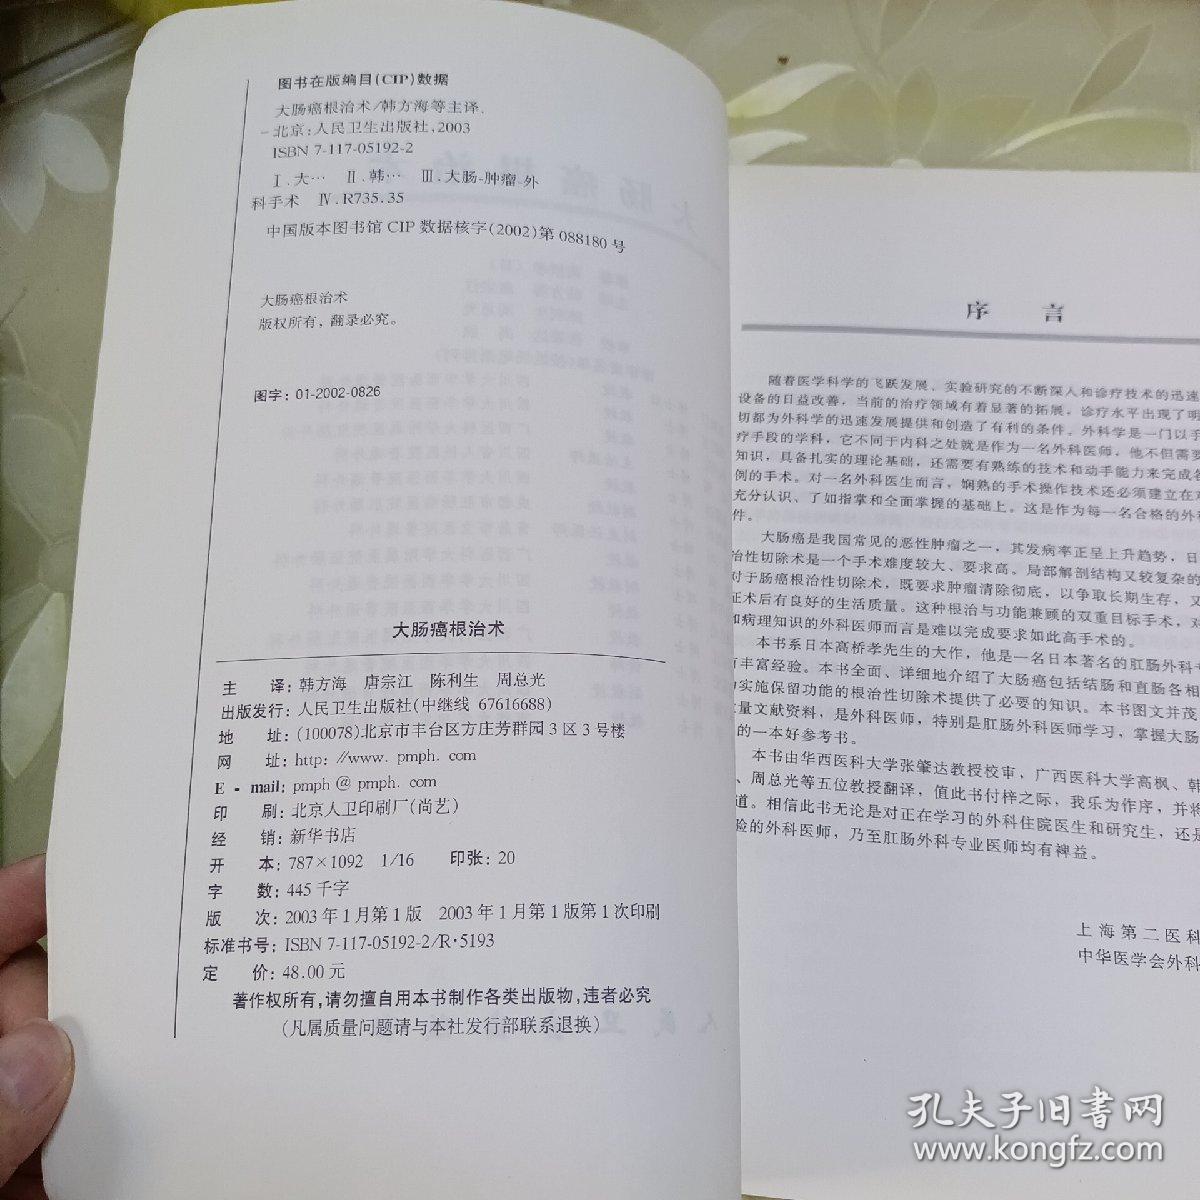 图书在版编目(CIP)数据
大肠癌根治术/韩方海等主译.
-北京:人民卫生出版社,2003
ISBN 7-117-05192-2
Ⅰ.大… Ⅱ.韩… Ⅲ.大肠-肿瘤-外
科手术 Ⅳ.R735.35
中国版本图书馆CIP数据核字(2002)第088180号
大肠癌根治术
版权所有，翻录必究。
图字：01-2002-0826
大肠癌根治术
主 译：韩方海 唐宗江 陈利生 周总光
出版发行：人民卫生出版社(中继线 67616688)
地 址：(100078)北京市丰台区方庄芳群园3区3号楼
网 址：http：//www. pmph. com
E - mail：pmph @ pmph. com
印 刷：北京人卫印刷厂(尚艺)
经 销：新华书店
开 本：787×1092 1/16 印张：20
字 数：445千字
版 次：2003年1月第1版 2003年1月第1版第1次印刷
标准书号：ISBN 7-117-05192-2/R·5193
定 价：48.00元
著作权所有,请勿擅自用本书制作各类出版物,违者必究
(凡属质量问题请与本社发行部联系退换)
序 言
随着医学科学的飞跃发展、实验研究的不断深入和诊疗技术的迅速
设备的日益改善，当前的治疗领域有着显著的拓展，诊疗水平出现了明
切都为外科学的迅速发展提供和创造了有利的条件。外科学是一门以手
疗手段的学科，它不同于内科之处就是作为一名外科医师，他不但需要
知识，具备扎实的理论基础，还需要有熟练的技术和动手能力来完成各
例的手术。对一名外科医生而言，娴熟的手术操作技术还必须建立在对
充分认识、了如指掌和全面掌握的基础上。这是作为每一名合格的外科
件。
大肠癌是我国常见的恶性肿瘤之一，其发病率正呈上升趋势，日
治性切除术是一个手术难度较大、要求高。局部解剖结构又较复杂的
对于肠癌根治性切除术，既要求肿瘤清除彻底，以争取长期生存，又
证术后有良好的生活质量。这种根治与功能兼顾的双重目标手术，对
和病理知识的外科医师而言是难以完成要求如此高手术的。
本书系日本高桥孝先生的大作，他是一名日本著名的肛肠外科专
有丰富经验。本书全面、详细地介绍了大肠癌包括结肠和直肠各相
实施保留功能的根治性切除术提供了必要的知识。本书图文并茂
量文献资料，是外科医师，特别是肛肠外科医师学习，掌握大肠
的一本好参考书。
本书由华西医科大学张肇达教授校审，广西医科大学高枫、韩
、周总光等五位教授翻译，值此书付梓之际，我乐为作序，并将
道。相信此书无论是对正在学习的外科住院医生和研究生，还是
验的外科医师，乃至肛肠外科专业医师均有裨益。
上海第二医科
中华医学会外科
孔夫子旧书网
www.kongfz.com